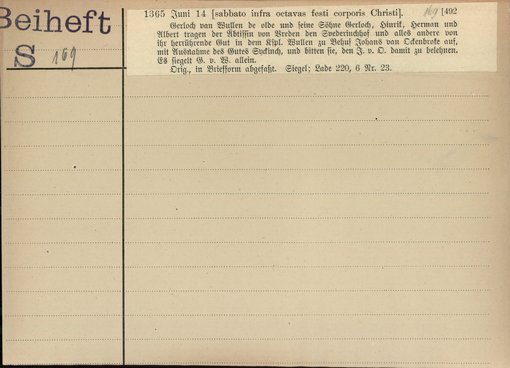 Beiheft
S 169
1365 Juni 14 [sabbato infra octavas festi corporis Christi]. 169 [492
Gerloch van Wullen de olde und seine Söhne Gerloch, Hinrik, Herman und
Albert tragen der Äbtissin von Vreden den Svederinchhof und alles andere von
ihr herrührende Gut in dem Kspl. Wullen zu Behuf Johans van Ockenbroke auf,
mit Ausnahme des Gutes Sickinch, und bitten sie, den J. v. O. damit zu belehnen.
Es siegelt G. v. W. allein.
Orig., in Briefform abgefaßt. Siegel; Lade 220, 6 Nr. 23.